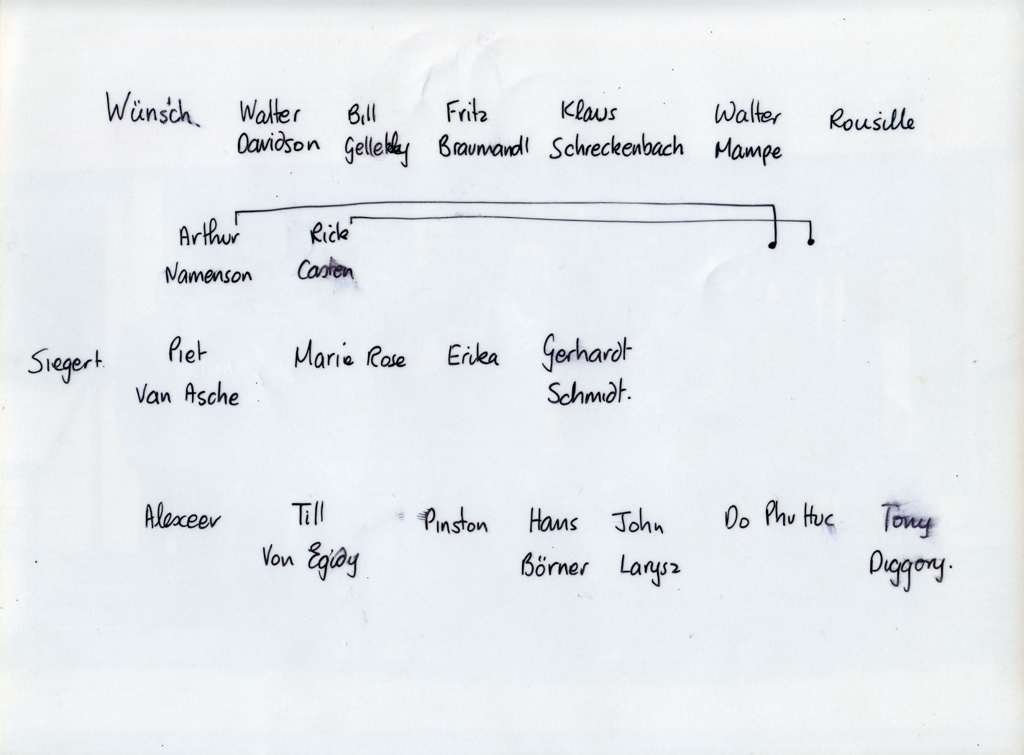 Wünsch. Walter Bill Fritz Klaus Walter Rousille
Davidson Braumandl Schreckenbach Mampe
Arthur Rick
Namenson Casten
Siegert. Piet Marie Rose Erika Gerhardt
Van Asche Schmidt.
Alexeev Till Pinston Hans John Do Phu Huc Tony
Von Egidy Börner Larysz Duggory.